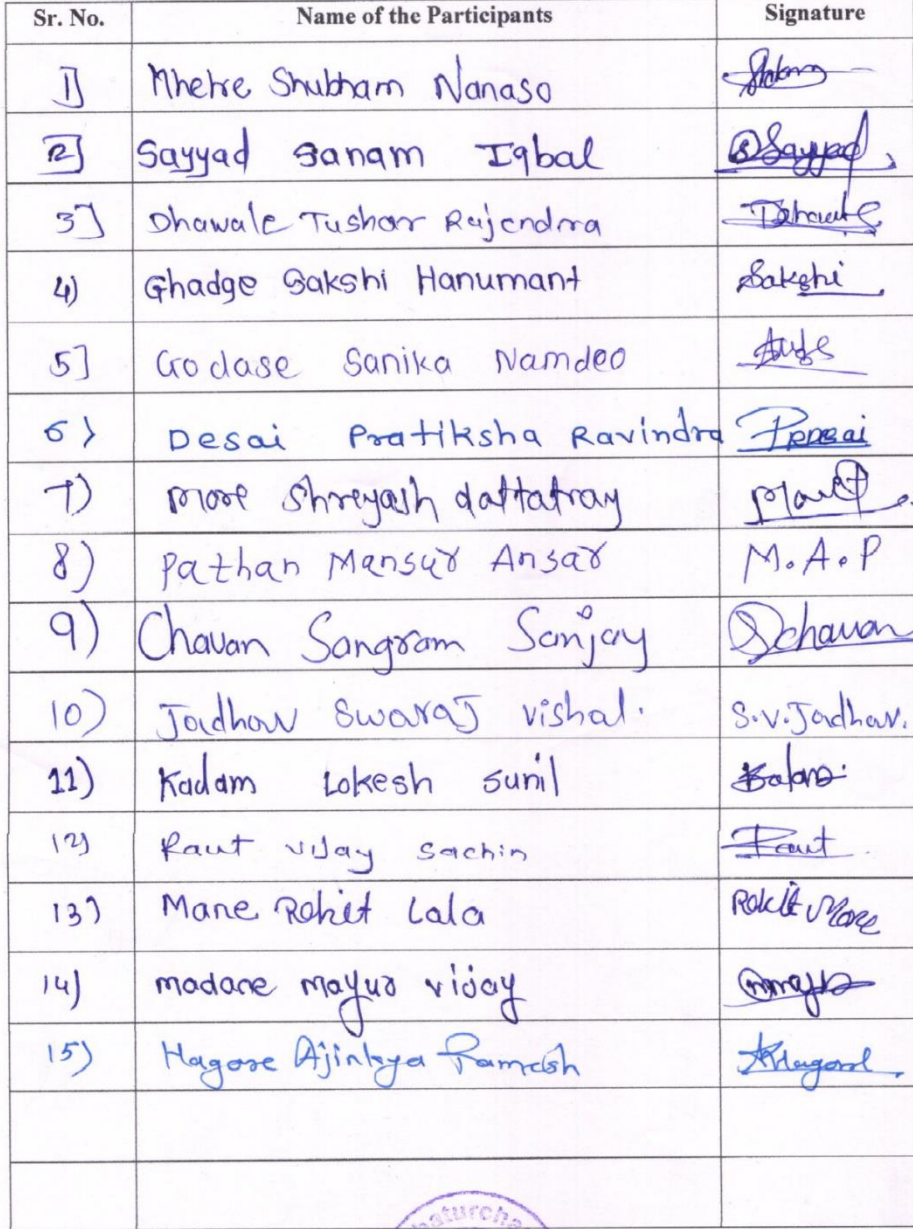 Sr. No. Name of the Participants Signature
1] Mhetre Shubham Nanaso
2] Sayyad Sanam Iqbal Sayyad
3] Dhawale Tushar Rajendra
4) Ghadge Sakshi Hanumant Sakshi
5] Godase Sanika Namdeo
6) Desai Pratiksha Ravindra
7) More Shreyash dattatray
8) Pathan Mansur Ansar M.A.P
9) Chavan Sangram Sanjay Schavan
10) Jadhav Swaraj vishal. S.V.Jadhav.
11) Kadam Lokesh Sunil
12) Raut vijay sachin Raut
13) Mane Rohit Lala Rohit Mane
14) madane mayur vijay
15) Hagare Ajinkya Ramesh
aturcha